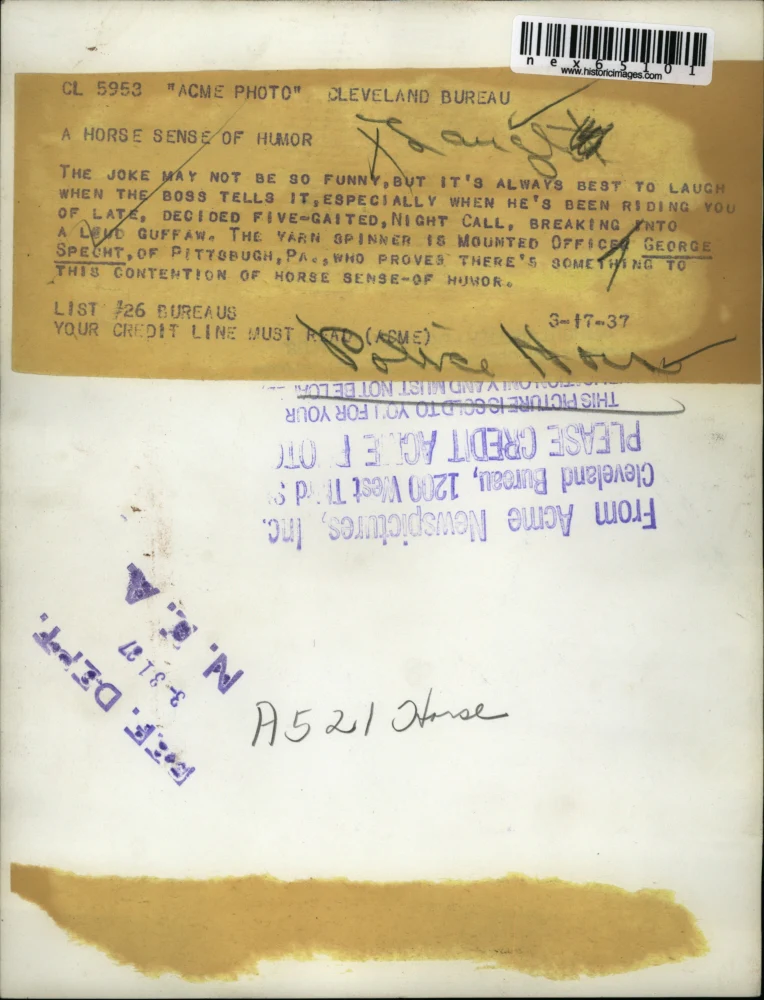 nex65101
www.historicimages.com
CL 5953 "ACME PHOTO" CLEVELAND BUREAU
A HORSE SENSE OF HUMOR
Laugh
THE JOKE MAY NOT BE SO FUNNY,BUT IT'S ALWAYS BEST TO LAUGH
WHEN THE BOSS TELLS IT,ESPECIALLY WHEN HE'S BEEN RIDING YOU
OF LATE, DECIDED FIVE-GAITED,NIGHT CALL, BREAKING INTO
A LOUD GUFFAW. THE YARN SPINNER IS MOUNTED OFFICER GEORGE
SPECHT,OF PITTSBUGH,PA.,WHO PROVES THERE'S SOMETHING TO
THIS CONTENTION OF HORSE SENSE-OF HUMOR.
LIST #26 BUREAUS 3-17-37
YOUR CREDIT LINE MUST READ (ACME)
Police Horse
From Acme Newspictures, Inc.
Cleveland Bureau, 1200 West Third
PLEASE CREDIT ACME PHOTO
THIS PICTURE IS SOLD TO YOU FOR YOUR
ONLY AND MUST NOT BE
REF. DEPT.
N. E. A.
A521 Horse